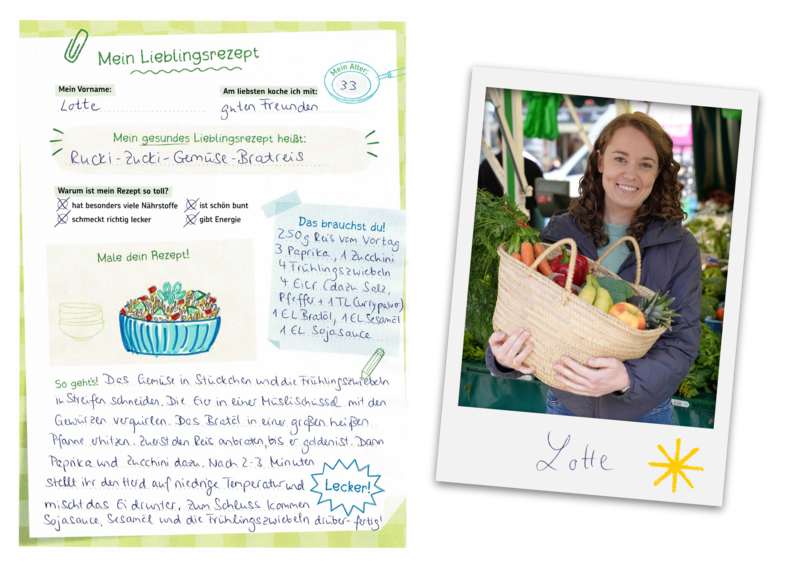 Mein Lieblingsrezept
Mein Alter:
33
Mein Vorname:
Lotte
Am liebsten koche ich mit:
guten Freunden
Mein gesundes Lieblingsrezept heißt:
Rucki-Zucki-Gemüse-Bratreis
Warum ist mein Rezept so toll?
hat besonders viele Nährstoffe
ist schön bunt
schmeckt richtig lecker
gibt Energie
Male dein Rezept!
Das brauchst du!
250g Reis vom Vortag
3 Paprika, 1 Zucchini
4 Frühlingszwiebeln
4 Eier (dazu Salz,
Pfeffer + 1 TL Currypulver)
1 EL Bratöl, 1 EL Sesamöl
1 EL Sojasauce
So geht's! Das Gemüse in Stückchen und die Frühlingszwiebeln
in Streifen schneiden. Die Eier in einer Müslischüssel mit den
Gewürzen verquirlen. Das Bratöl in einer großen heißen
Pfanne erhitzen. Zuerst den Reis anbraten, bis er golden ist. Dann
Paprika und Zucchini dazu. Nach 2-3 Minuten
stellt ihr den Herd auf niedrige Temperatur und
mischt das Ei drunter. Zum Schluss kommen
Sojasauce, Sesamöl und die Frühlingszwiebeln drüber - fertig!
Lecker!
Lotte